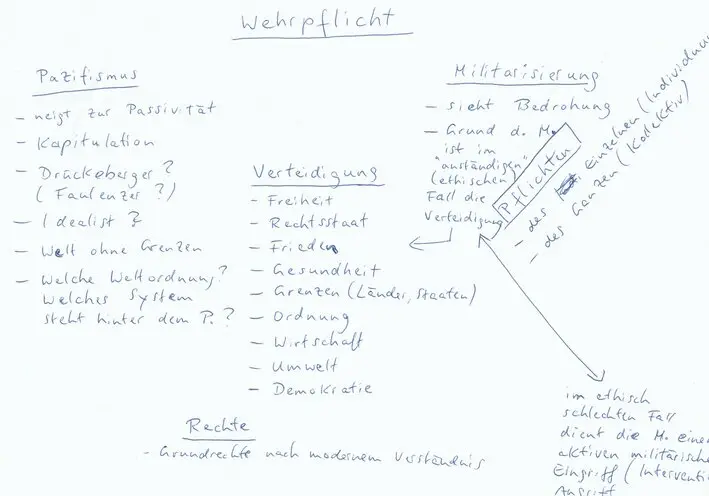 Wehrpflicht
Pazifismus
- neigt zur Passivität
- Kapitulation
- Drückeberger?
(Faulenzer?)
- Idealist?
- Welt ohne Grenzen
- Welche Weltordnung?
Welches System
steht hinter dem P.?
Verteidigung
- Freiheit
- Rechtsstaat
- Frieden
- Gesundheit
- Grenzen (Länder, Staaten)
- Ordnung
- Wirtschaft
- Umwelt
- Demokratie
Militarisierung
- sieht Bedrohung
- Grund d. M.
ist im
"anständigen"
(ethischen)
Fall die
Verteidigung
Pflichten
- des Einzelnen (Individuum
- des Ganzen (Kollektiv)
im ethisch
schlechten Fall
dient die M. einem
aktiven militärische
Eingriff (Interventi
Angriff
Rechte
- Grundrechte nach modernem Verständnis